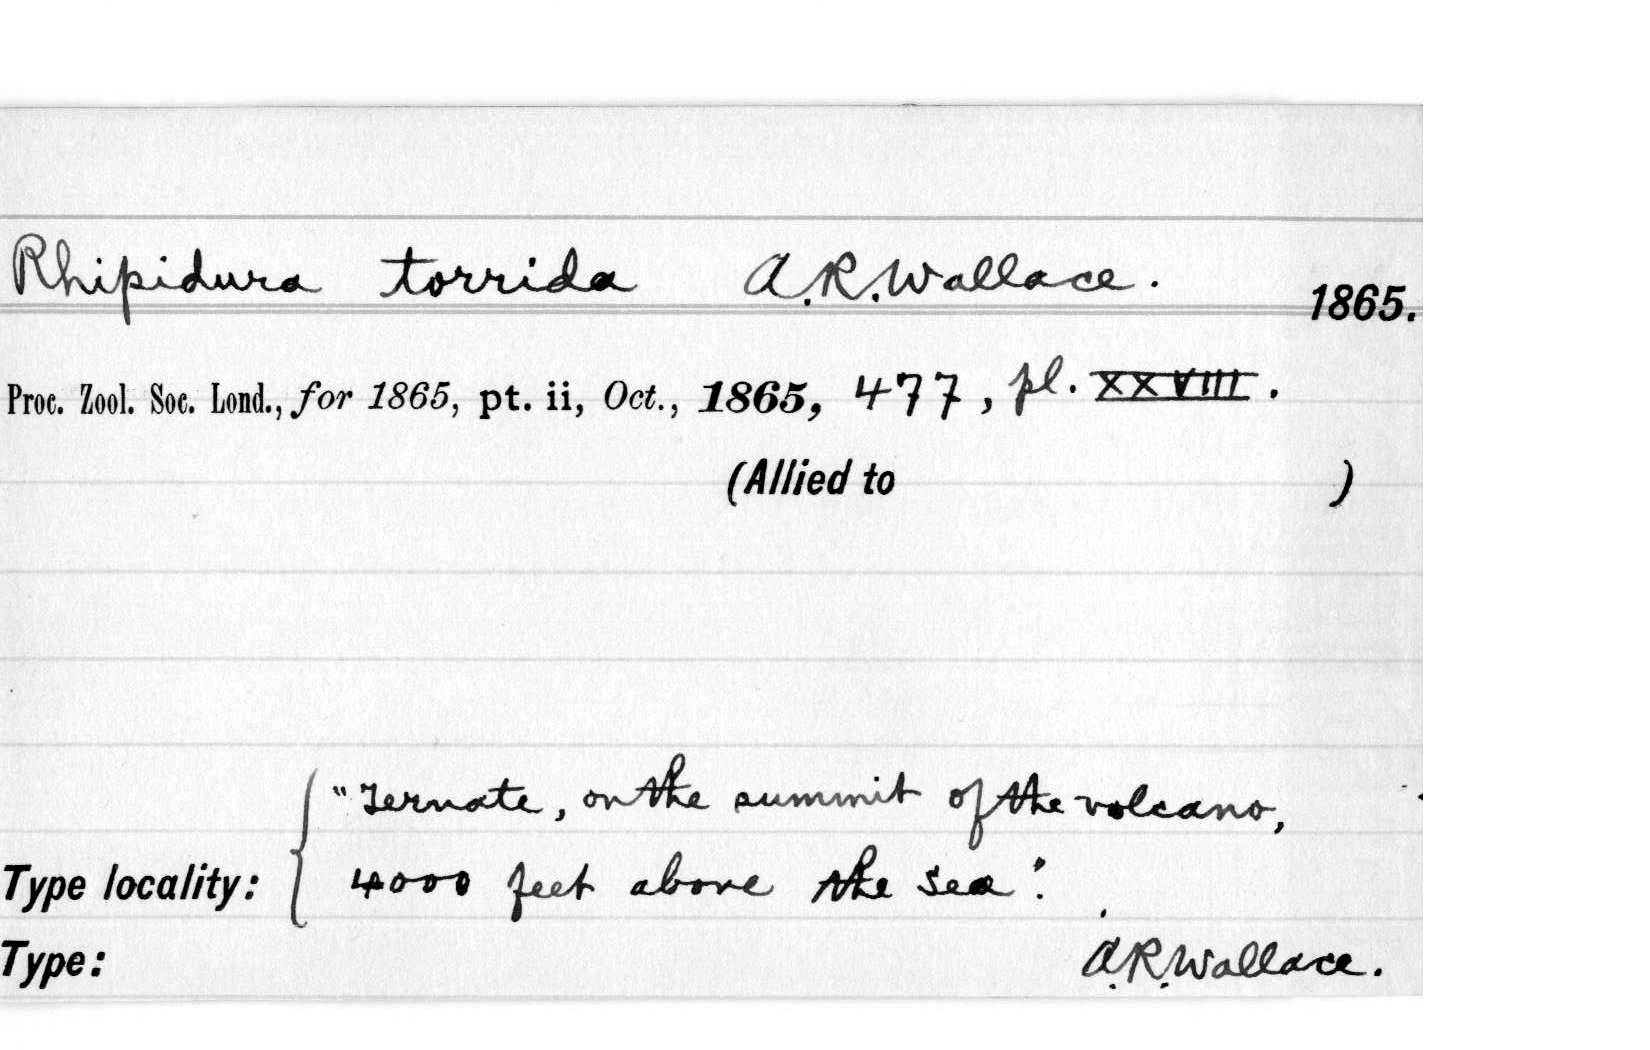 Rhipidura torrida A.R.Wallace. 1865.
Proc. Zool. Soc. Lond., for 1865, pt. ii, Oct., 1865, 477, pl. XXVIII.
(Allied to )
"Ternate, on the summit of the volcano,
Type locality: 4000 feet above the sea".
Type: A.R.Wallace.